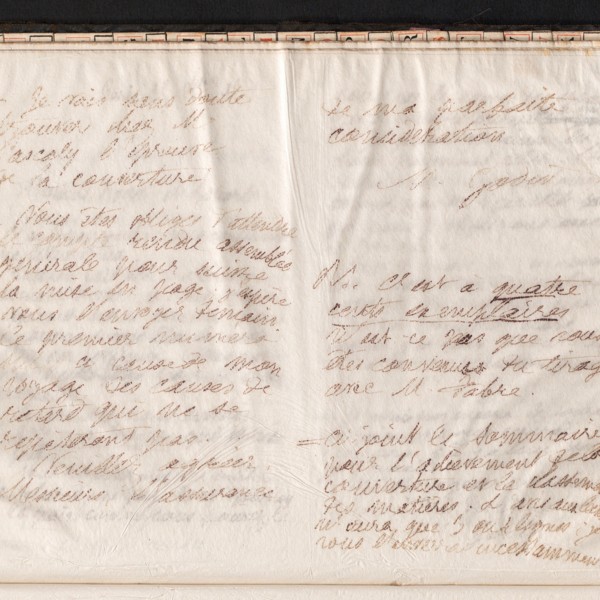 Je vais sans doute
trouver chez M.
Pascaly l'épreuve
de la couverture
Vous êtes obligés d'attendre
le compte rendu assemblée
générale pour suivre
la mise en page. J'espère
vous l'envoyer demain
le premier numéro
a cause de mon
voyage des causes de
retard qui ne se
reposeront pas.
Veuillez agréer
Messieurs l'assurance
de ma parfaite
considération
M. Godin
P.S. C'est à quatre
cents exemplaires
n'est ce pas que vous
êtes convenus du tirage
avec M. Fabre.
= Ci joint le sommaire
pour l'achèvement de la
couverture et le classement
des matières.
n'aura que 3 ou 4 lignes je
vous l'enverrai incessamment